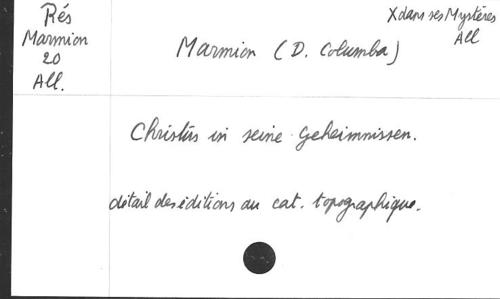 Rés
Marmion
20
All.
X dans ses Mystères
All
Marmion (D. Columba)
Christus in seine Geheimnissen.
détail des éditions au cat. topographique.